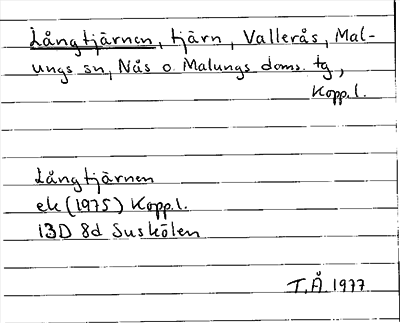 Långtjärnen, tjärn, Vallerås, Mal-
ungs sn, Nås o. Malungs doms. tg,
Kopp.l.
Långtjärnen
ek (1975) Kopp.l.
13D 8d Suskölen
T.Å 1977